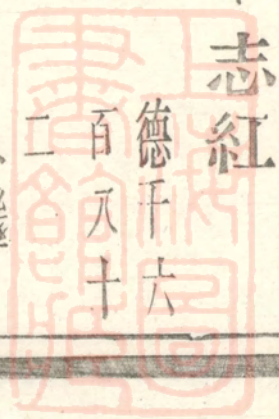 志紅
德千六
百八十
二